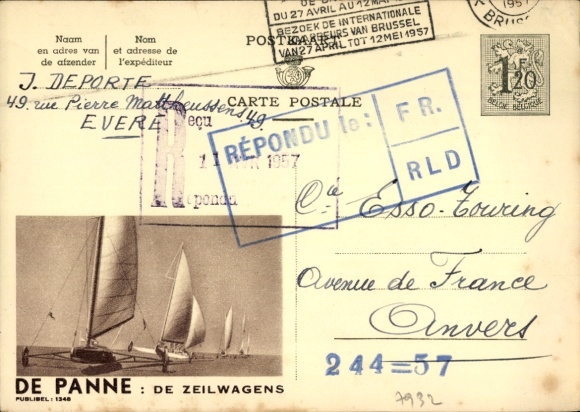 DU 27 AVRIL AU 12 MAI
BEZOEK DE INTERNATIONALE
VAN BRUSSEL
VAN 27 APRIL TOT 12 MEI 1957
1957
Naam
en adres van
de afzender
Nom
et adresse de
l'expéditeur
POSTKAART
CARTE POSTALE
1 F 20
BELGIE-BELGIQUE
J. DEPORTE
49, rue Pierre Mattheussens, 49.
EVERE
Reçu
1957
Répondu
RÉPONDU le:
FR.
RLD
Cie Esso-Touring
Avenue de France
Anvers
244=57
7932
DE PANNE : DE ZEILWAGENS
PUBLIBEL: 1348